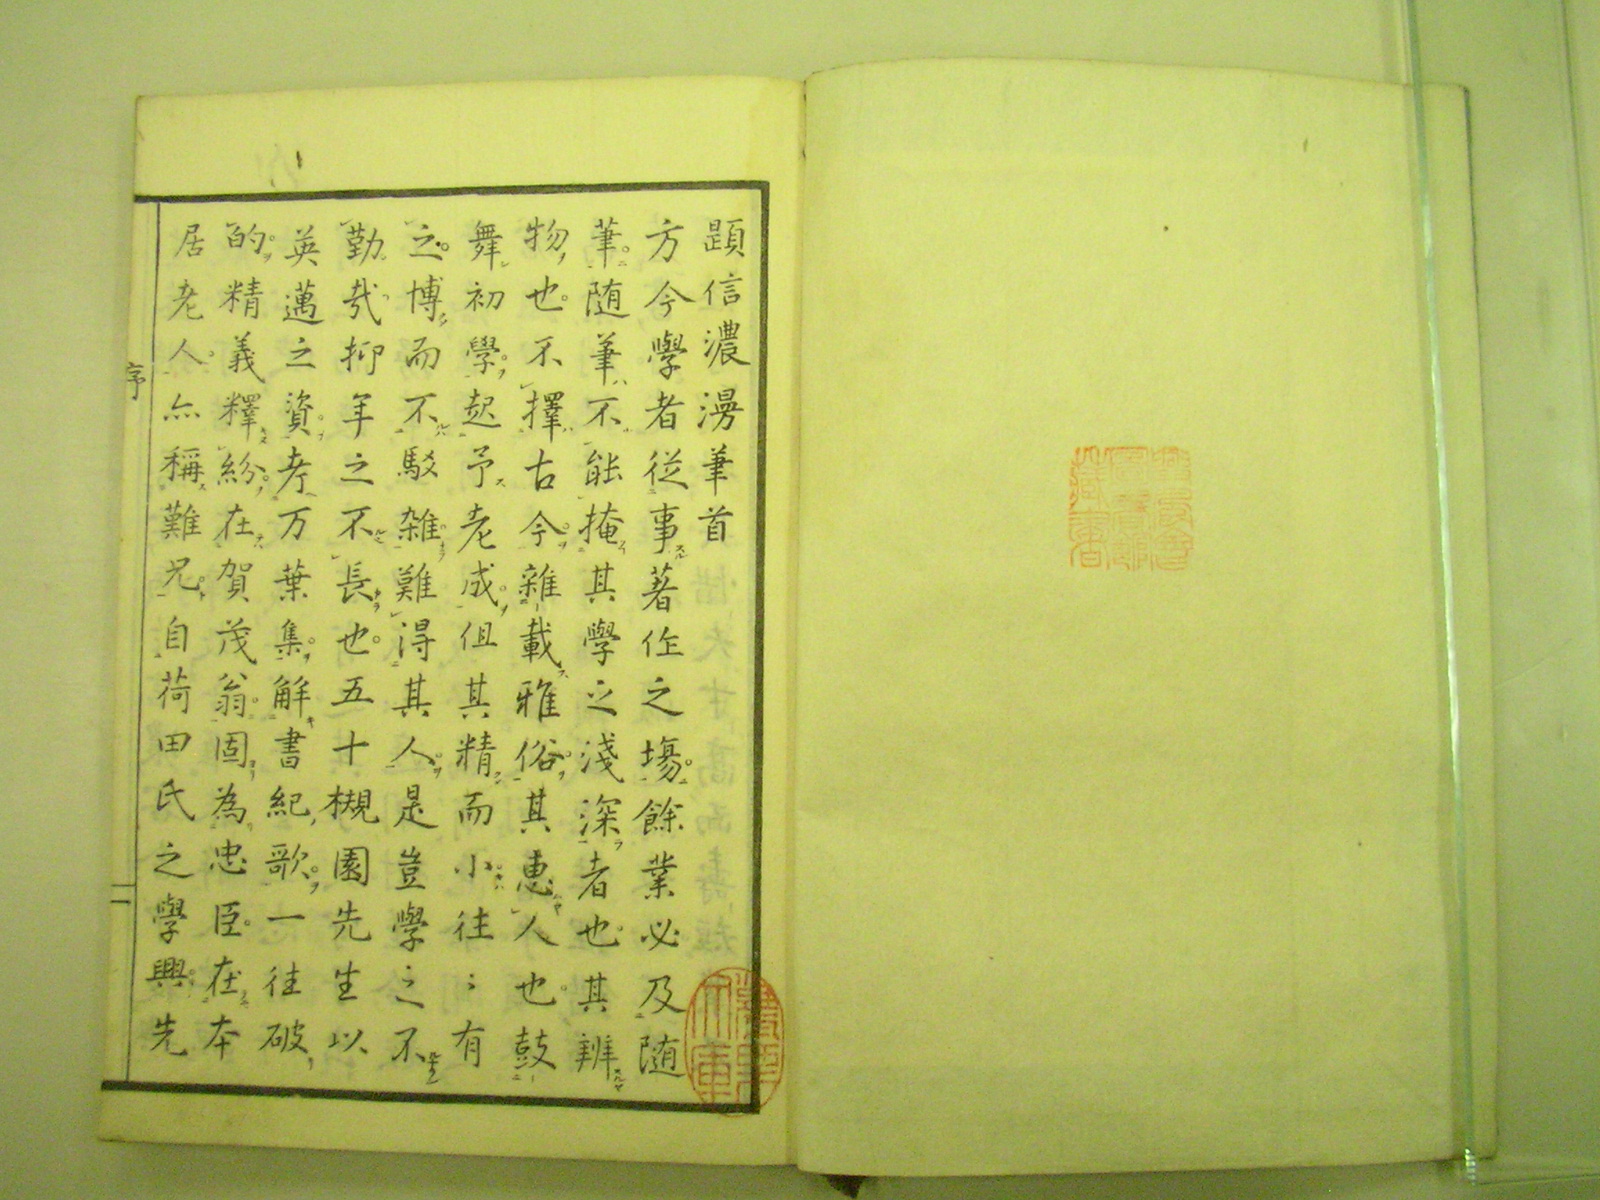 題信濃漫筆首
方今學者從事著作之場餘業必及随
筆随筆不能掩其學之淺深者也其辨
物也不擇古今雜載雅俗其惠人也鼓
舞初學起予老成伹其精而小往〻有
之博而不駁雑難得其人是豈學之不
勤㢤抑年之不長也五十槻園先生以
英邁之資考万葉集解書紀歌一往破
的精義釋紛在賀茂翁固為忠臣在本
居老人亦稱難兄自荷田氏之學興先
序
二